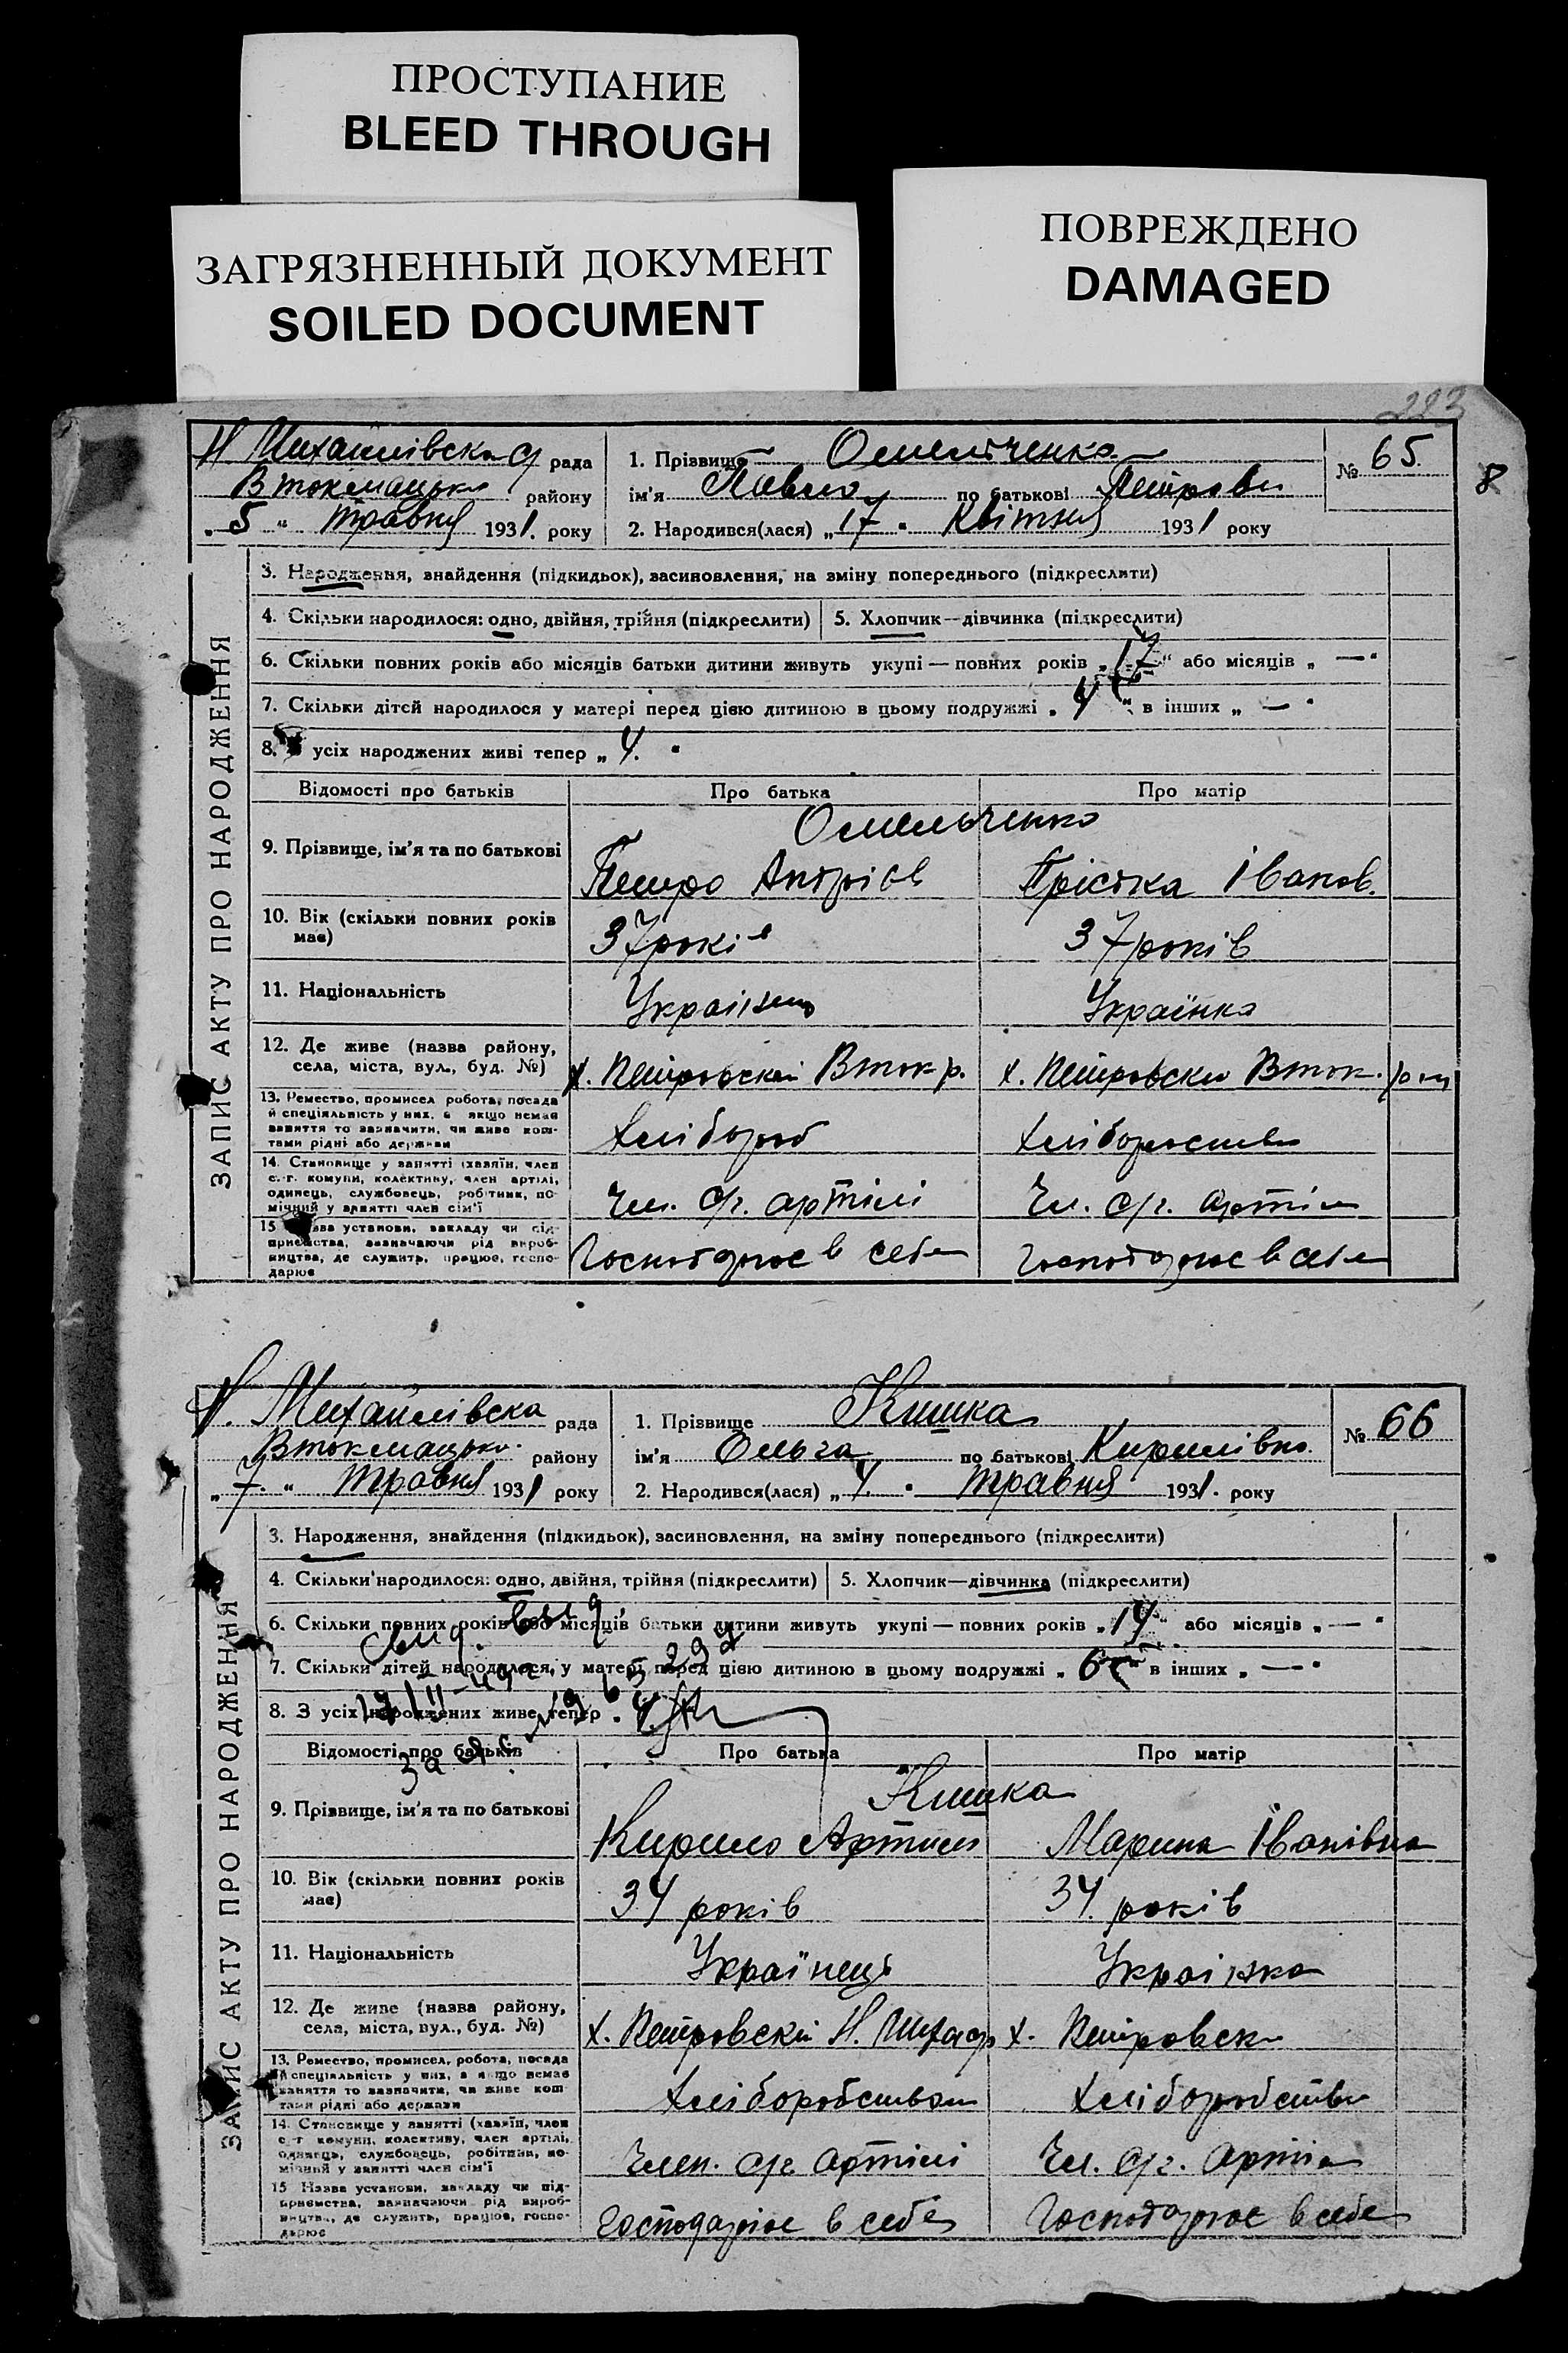 ПРОСТУПАНИЕ
BLEED THROUGH
ЗАГРЯЗНЕННЫЙ ДОКУМЕНТ
SOILED DOCUMENT
ПОВРЕЖДЕНО
DAMAGED
223
8
Н Михайлівска рада
Втокмацьки району
„5“ травня 1931. року
1. Прізвище Омельченко
ім'я Павло по батькові Петрови
2. Народився(лася) „17“ Квітня 1931 року
№ 65.
ЗАПИС АКТУ ПРО НАРОДЖЕННЯ
3. Народження, знайдення (підкидьок), засиновлення, на зміну попереднього (підкреслити)
4. Скільки народилося: одно, двійня, трійня (підкреслити)
5. Хлопчик—дівчинка (підкреслити)
6. Скільки повних років або місяців батьки дитини живуть укупі — повних років „17“ або місяців „—“
7. Скільки дітей народилося у матері перед цією дитиною в цьому подружжі „4“ в інших „—“
8. З усіх народжених живі тепер „4.“
Відомості про батьків Про батька Про матір
Омельченко
9. Прізвище, ім'я та по батькові Петро Андріев Іванов.
10. Вік (скільки повних років має) 37 років 37 років
11. Національність Українець Українка
12. Де живе (назва району, села, міста, вул., буд. №) х. Петровский Вток р. х. Петровски Вток. р-ну
13. Ремество, промисел робота, посада й спеціяльність у них, а якщо немає заняття то зазначити, чи живе коштами рідні або держави Хлібороб Хліборобств
14. Становище у занятті (хазяїн, член с.-г. комуни, колективу, член артілі, одинець, службовець, робітник, помічний у занятті член сім'ї Чл. с/г. артілі Чл. с/г. артіл
15 Назва установи, закладу чи підприємства, зазначаючи рід виробництва, де служить, працює, господарює Господарює в себе Господарює в себе
Н. Михайлівска рада
Втокмацьки. району
„7.“ травня 1931 року
1. Прізвище Кишка
ім'я Ольга по батькові Кирилівна.
2. Народився(лася) „4.“ травня 1931. року
№ 66
ЗАПИС АКТУ ПРО НАРОДЖЕННЯ
3. Народження, знайдення (підкидьок), засиновлення, на зміну попереднього (підкреслити)
4. Скільки народилося: одно, двійня, трійня (підкреслити)
5. Хлопчик—дівчинка (підкреслити)
6. Скільки повних років або місяців батьки дитини живуть укупі — повних років „14“ або місяців „—“
7. Скільки дітей народилося у матері перед цією дитиною в цьому подружжі „6“ в інших „—“
8. З усіх народжених живе тепер „4.
свид. выд.
Відомості про батьків Про батька Про матір
Кишка
9. Прізвище, ім'я та по батькові Кирило Артим Марина Іванівна
10. Вік (скільки повних років має) 34 років 34 років
11. Національність Українець Українка
12. Де живе (назва району, села, міста, вул., буд. №) х. Петровский Н. Миха х. Петровски
13. Ремество, промисел, робота, посада й спеціяльність у них, а якщо немає заняття то зазначити, чи живе коштами рідні або держави Хліборобством Хліборобств
14. Становище у занятті (хазяїн, член с.-г комуни, колективу, член артілі, одинець, службовець, робітник, помічний у занятті член сім'ї Член. с/г. артілі Чл. с/г. артіл
15 Назва установи, закладу чи підприємства, зазначаючи рід виробництва, де служить, працює, господарює Господарює в себе Господарює в себе